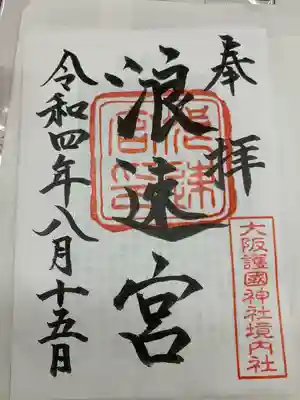 奉拝
浪速宮
令和四年八月十五日
大阪護國神社境内社